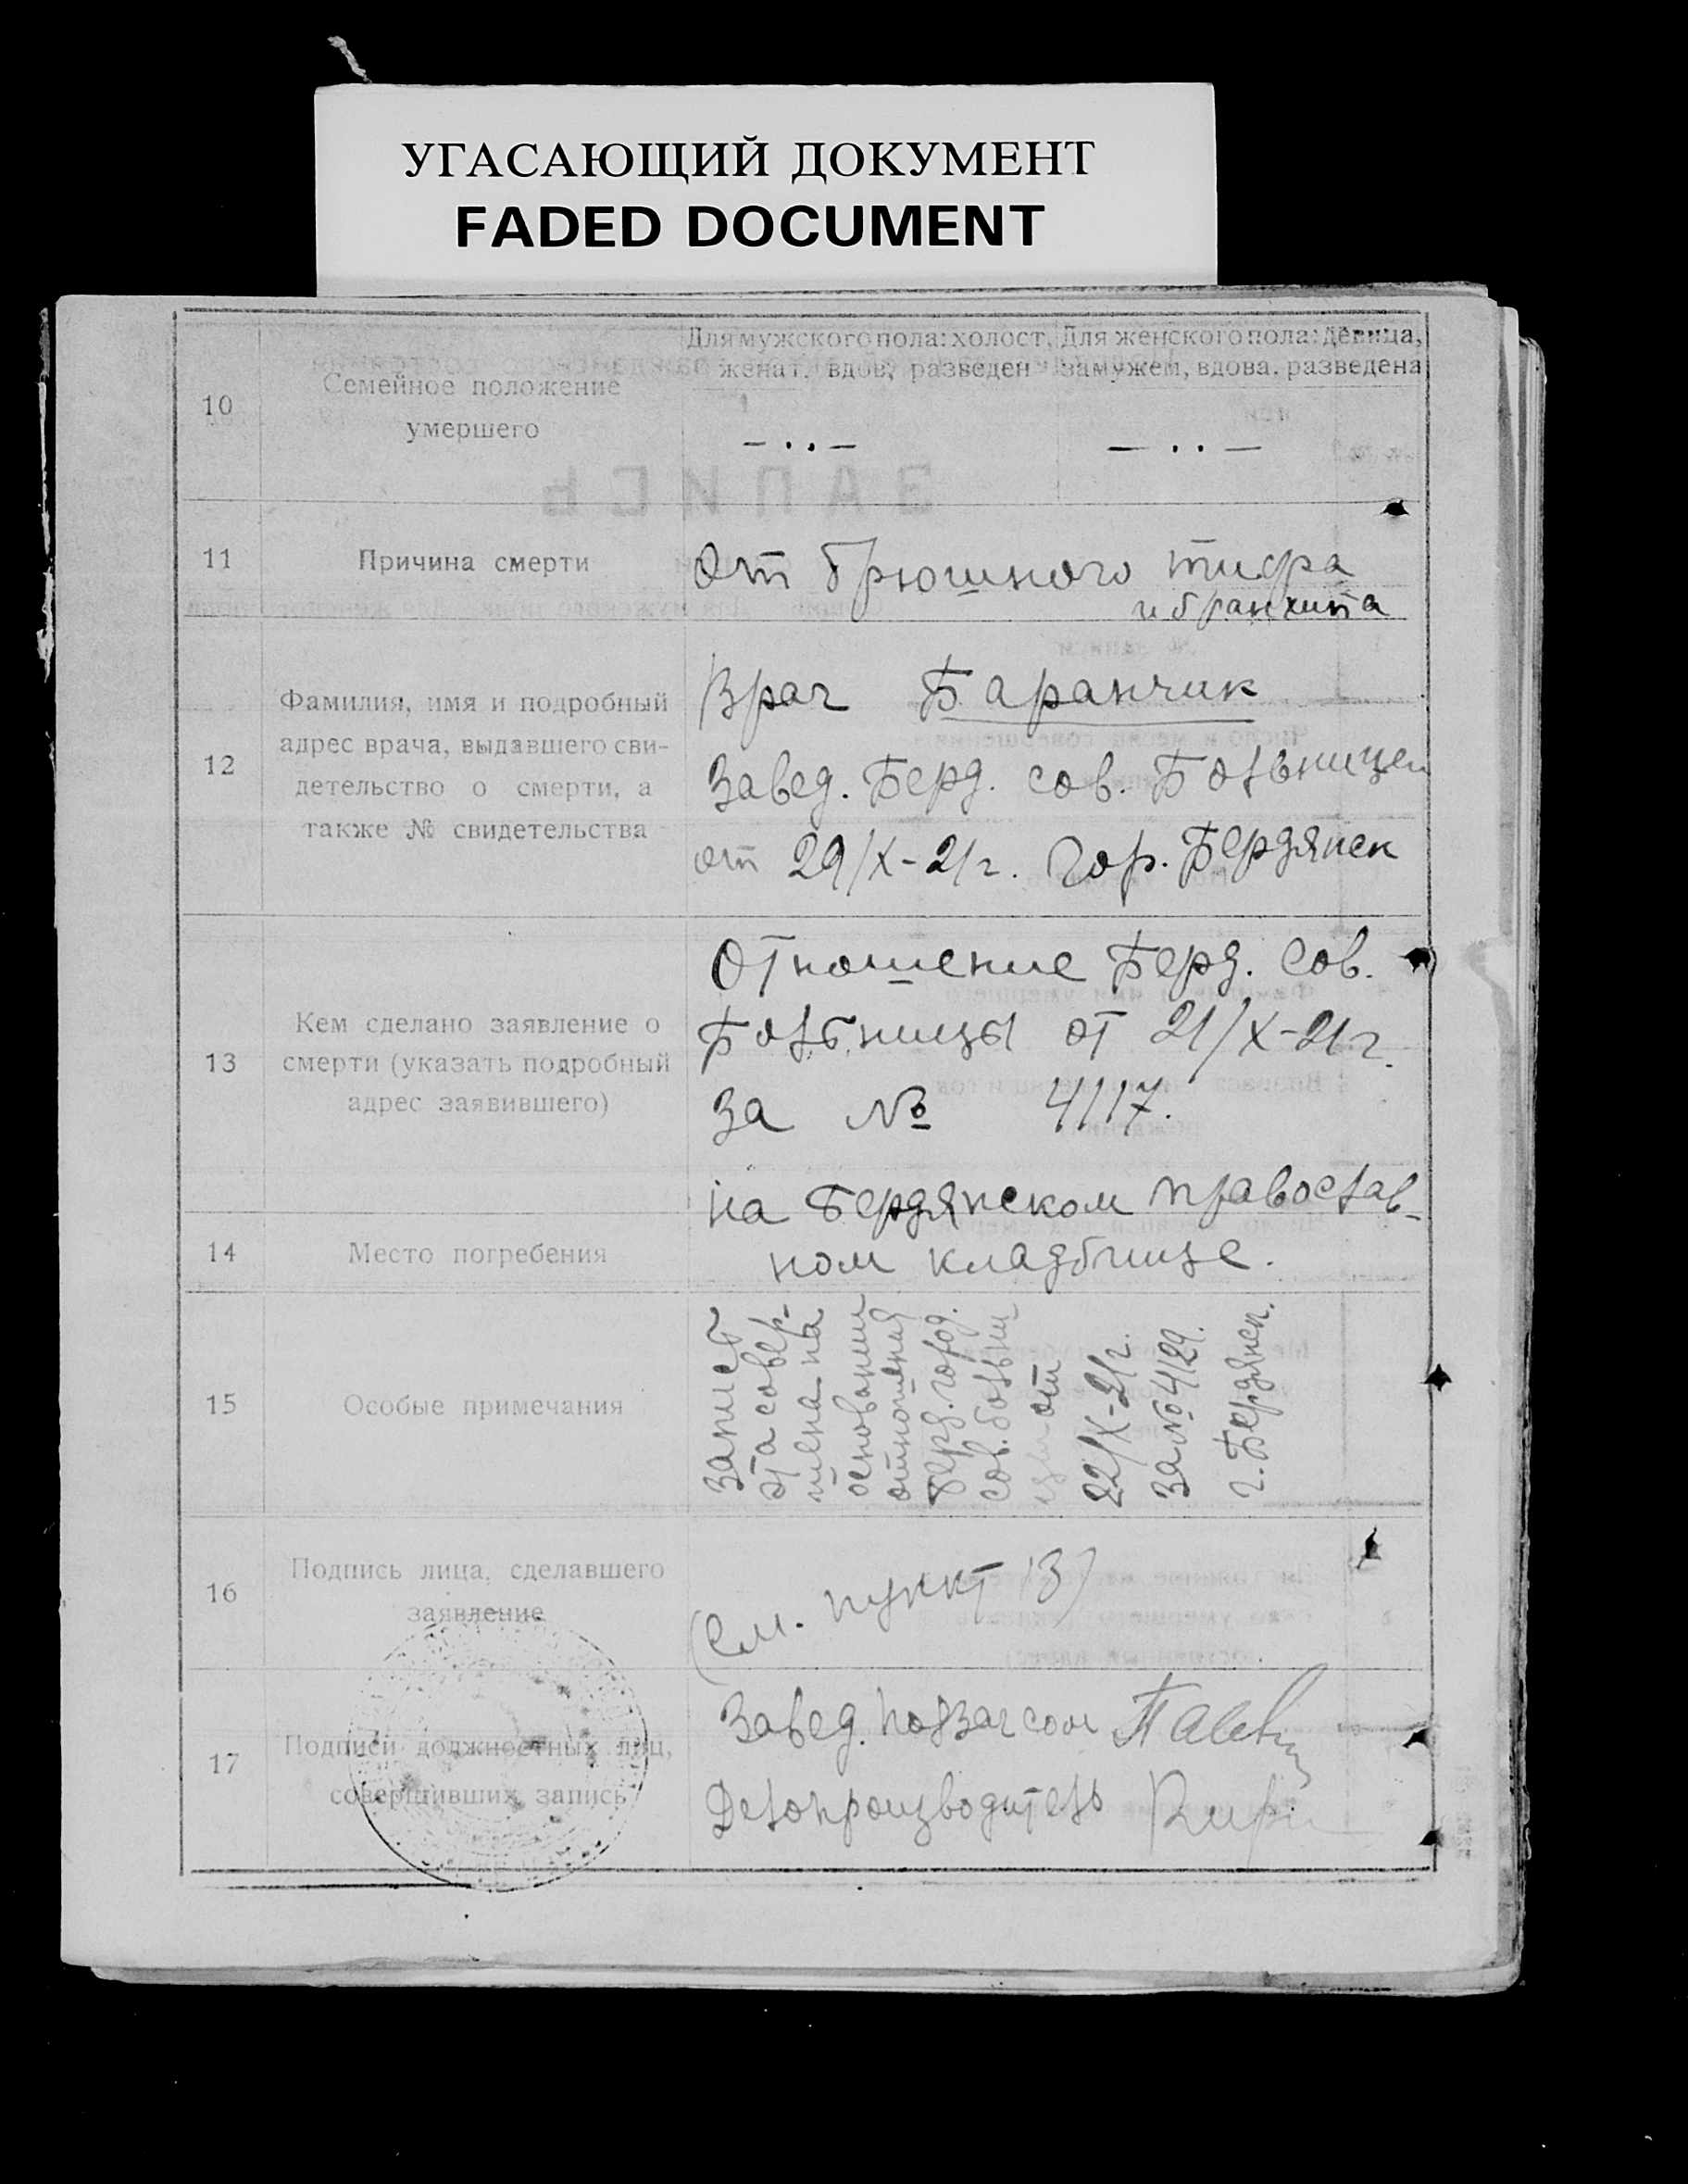 УГАСАЮЩИЙ ДОКУМЕНТ
FADED DOCUMENT
10
Семейное положение
умершего
Для мужского пола: холост,
женат, вдов, разведен
Для женского пола: девица,
замужем, вдова, разведена
— . . —
— . . —
11
Причина смерти
От брюшного тифа
и бранхита
12
Фамилия, имя и подробный
адрес врача, выдавшего сви-
детельство о смерти, а
также № свидетельства
Врач Баранчик
Завед. Берд. сов. Больницей
от 29/X-21г. Гор. Бердянск
13
Кем сделано заявление о
смерти (указать подробный
адрес заявившего)
Отношение Берд. Сов.
Больницы от 21/X-21г.
за № 4117.
14
Место погребения
на Бердянском православ-
ном кладбище.
15
Особые примечания
Запись
эта совер-
шена на
основании
отношения
Берд. город.
сов. больни
цы от
22/X-21г.
за № 4129.
г. Бердянск.
16
Подпись лица, сделавшего
заявление
(см. пункт 13)
17
Подписи должностных лиц,
совершивших запись
Завед. подзагсом
Делопроизводитель
ЗАПИСЬ